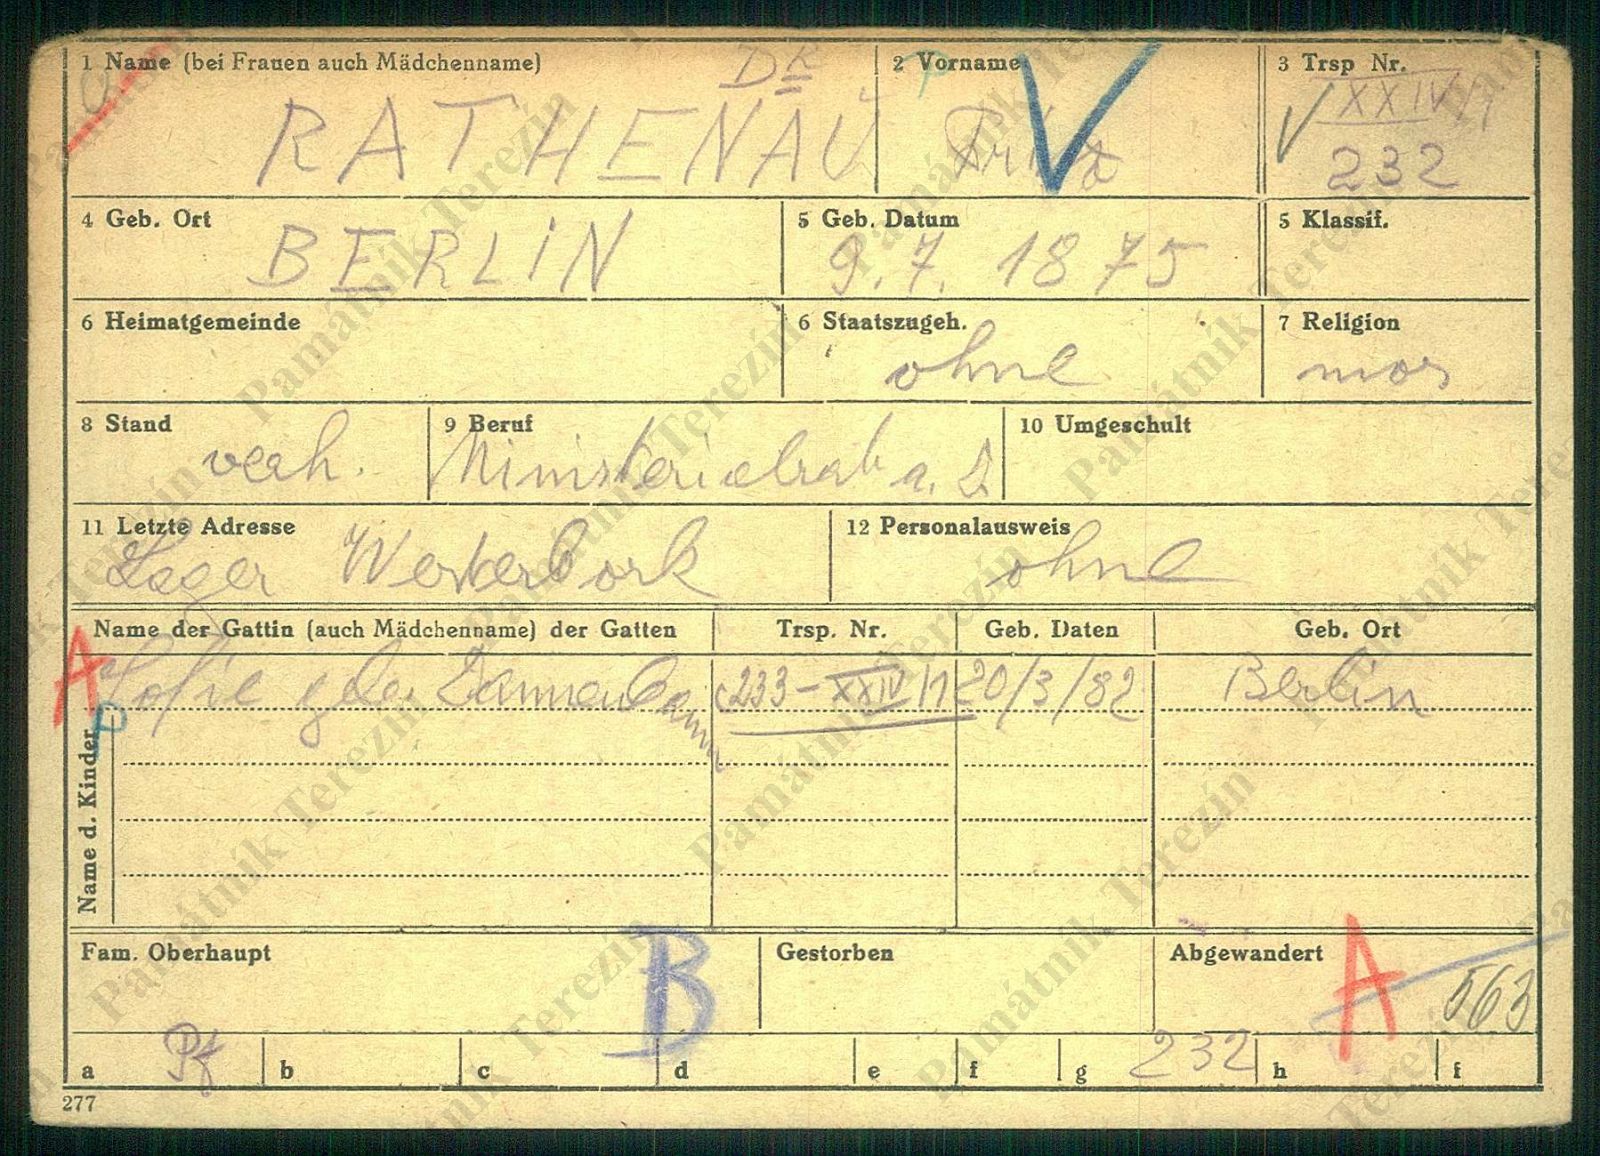 1 Name (bei Frauen auch Mädchenname)
DR
RATHENAU
2 Vorname
Fritz
V
3 Trsp Nr.
XXIV/1
232
4 Geb. Ort
BERLIN
5 Geb. Datum
9.7. 1875
5 Klassif.
6 Heimatgemeinde
6 Staatszugeh.
ohne
7 Religion
mos
8 Stand
verh.
9 Beruf
Ministerialrat a. D
10 Umgeschult
11 Letzte Adresse
Lager Westerbork
12 Personalausweis
ohne
Name der Gattin (auch Mädchenname) der Gatten
Trsp. Nr.
Geb. Daten
Geb. Ort
A
Sofie geb. Dannenbaum
233-XXIV/1
20/3/82
Berlin
Name d. Kinder
Fam. Oberhaupt
B
Gestorben
Abgewandert
A
563
a
b
c
d
e
f
g
232
h
i
277
Památník Terezín